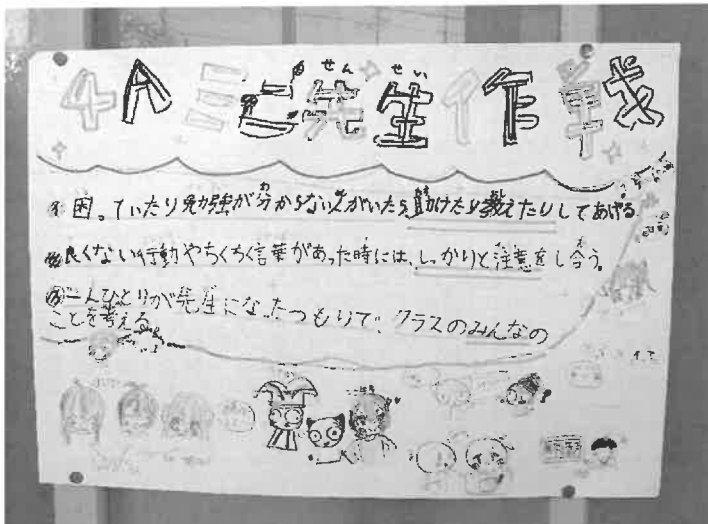 4Aミニ先生作戦
せんせい
①困っていたり勉強が分からない人がいたら、助けたり教えたりしてあげる
②良くない行動やちくちく言葉があった時には、しっかりと注意をし合う。
③一人ひとりが先生になったつもりで、クラスのみんなの
ことを考える